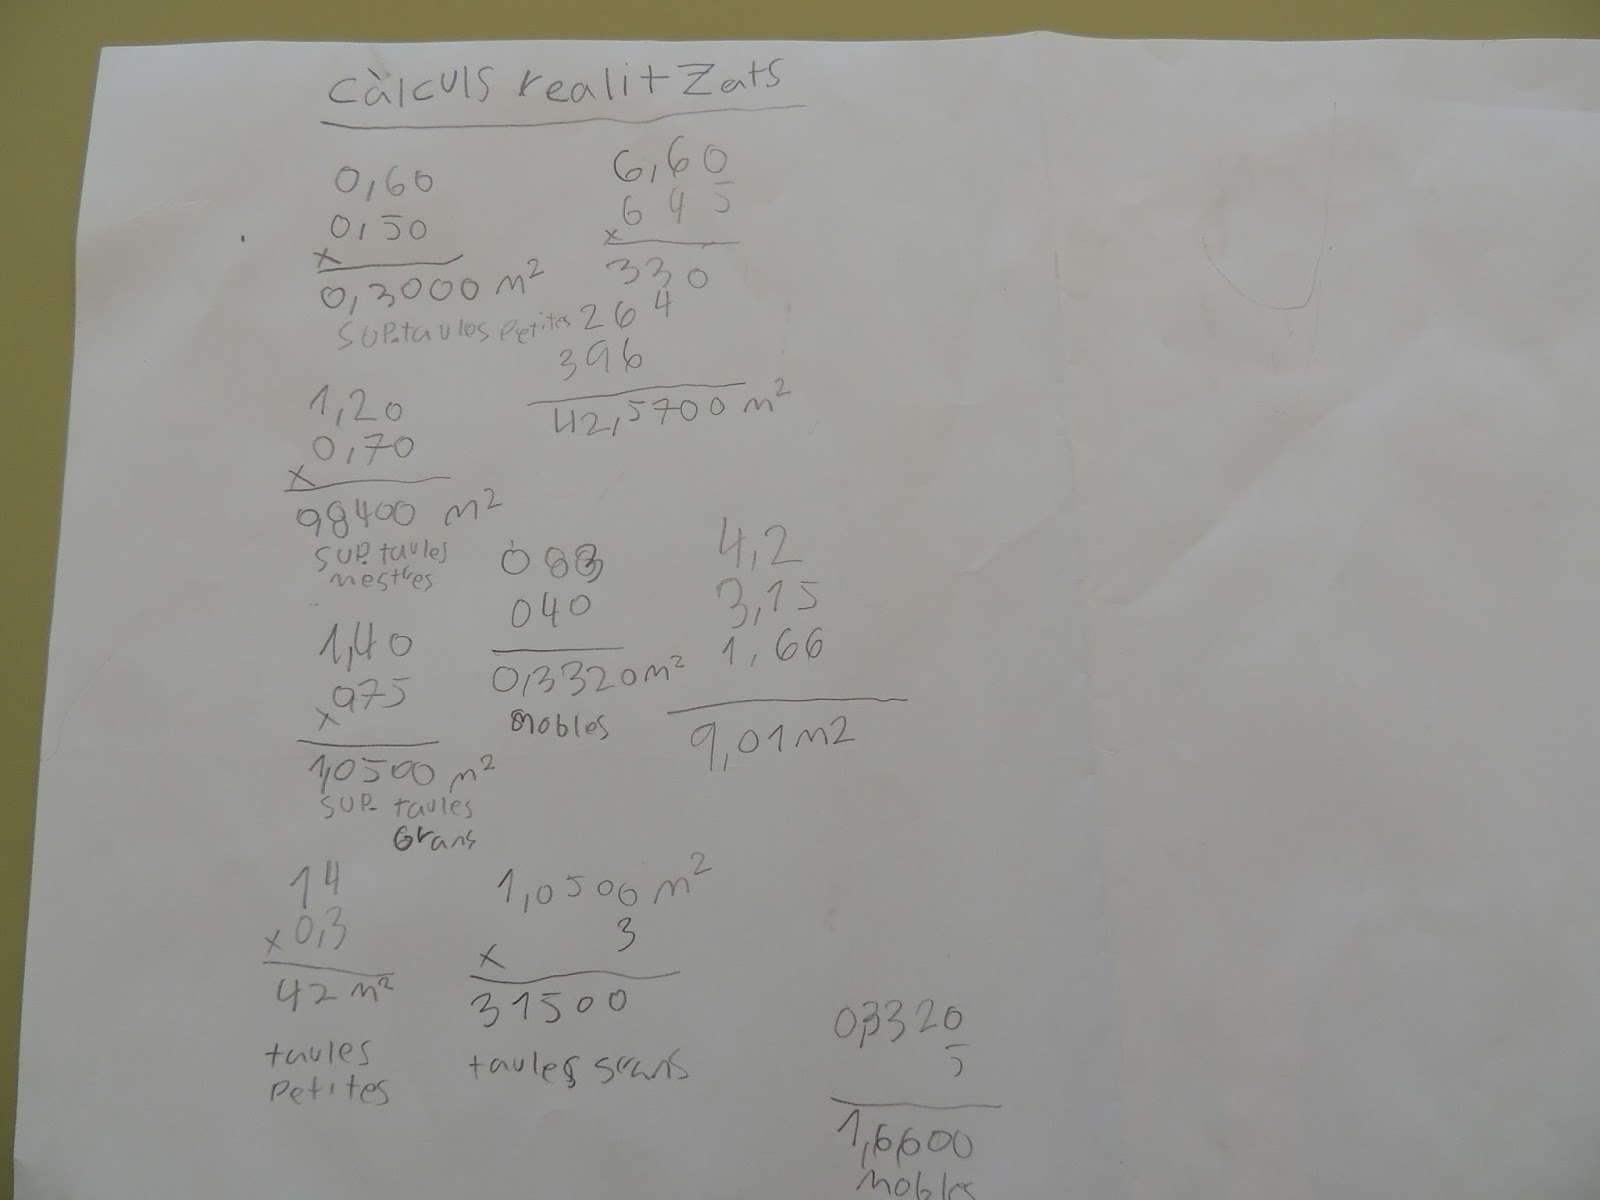 càlculs realitzats
0,60
0,50
x
0,3000 m²
SUP. taules petites
6,60
6 45
x
330
264
396
42,5700 m²
1,20
0,70
x
98400 m²
SUP. taules
mestres
1,40
x 075
1,0500 m²
SUP. taules
Grans
083
040
0,3320 m²
Mobles
4,2
3,15
1,66
9,01 m2
14
x 0,3
42 m²
taules
petites
1,0500 m²
x 3
31500
taules grans
0,3320
5
1,6600
Mobles